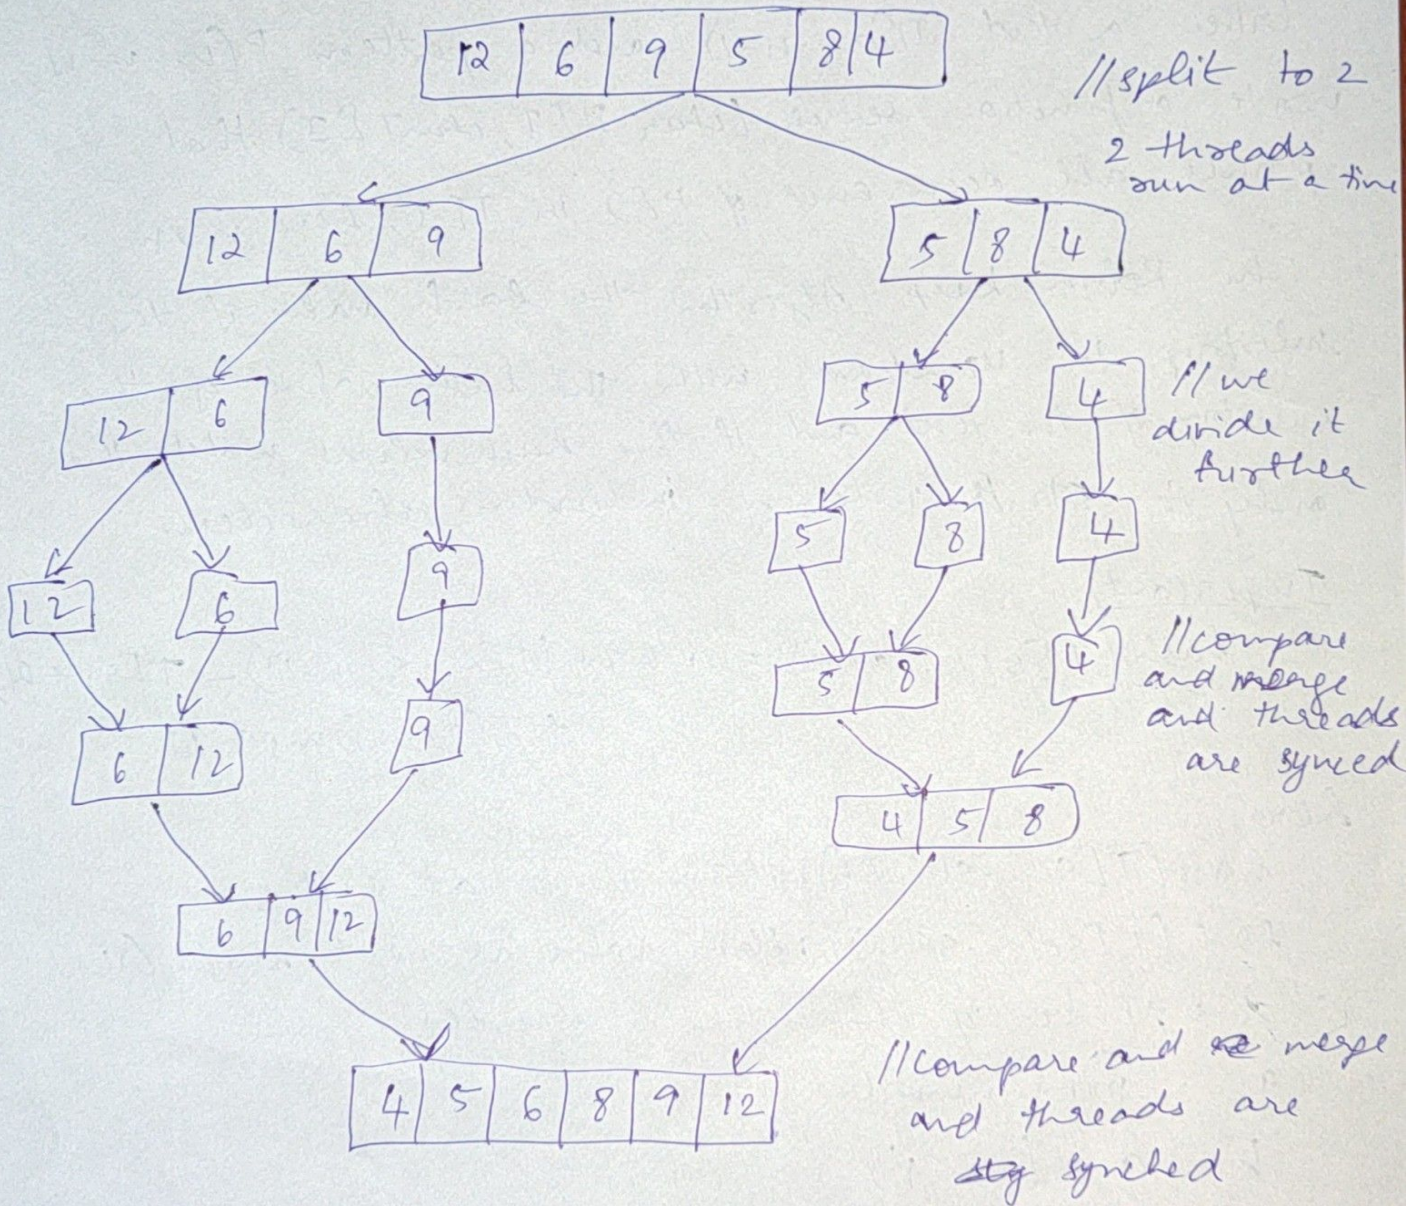 12 6 9 5 8 4
//split to 2
2 threads
run at a time
12 6 9
5 8 4
12 6
9
5 8
4
//we
divide it
further
12
6
9
5
8
4
6 12
9
5 8
4
//compare
and merge
and threads
are synced
6 9 12
4 5 8
4 5 6 8 9 12
//compare and merge
and threads are
synched